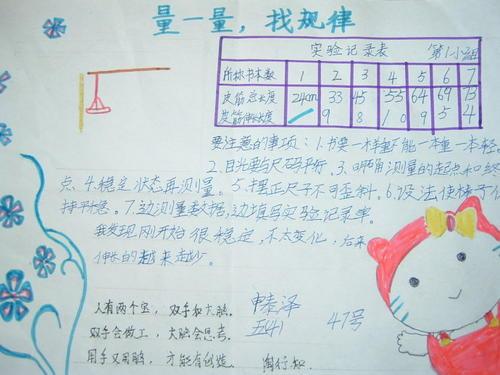 量一量，找规律
实验记录表 第1小组
所称书本数 1 2 3 4 5 6 7
皮筋总长度 24cm 33 45 55 64 69 73
皮筋伸长长度 9 8 10 9 5 4
要注意的事项：1.书要一样重不能一本重一本轻。
2.目光要与尺码平行、3.明确测量的起点和终
点 4.稳定状态再测量。5.摆正尺子不可歪斜。6.设法使梯子保
持平稳。7.边测量数据，边填写实验记录单。
我发现刚开始很稳定，不太变化，后来
伸长的越来越少。
人有两个宝，双手和大脑。
双手会做工，大脑会思考。
用手又用脑，才能有创造。 陶行知
申泰泽
五(4) 47号